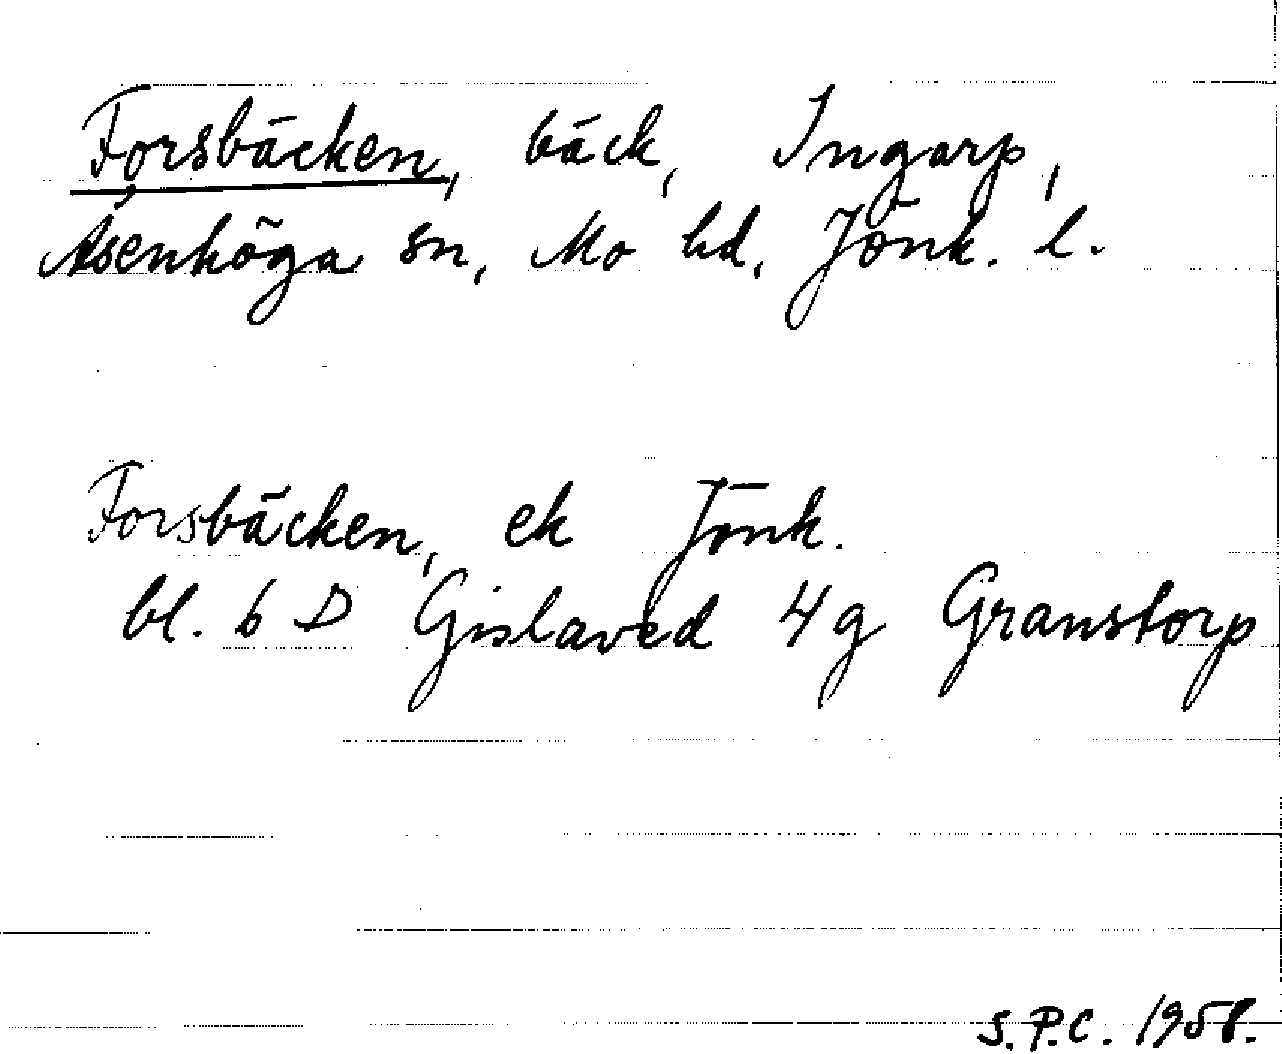 Forsbäcken, bäck, Ingarp,
Åsenhöga sn, Mo hd, Jönk. l.
Forsbäcken, ek Jönk.
bl. 6 D Gislaved 4g Granstorp
S.P.C. 1958.